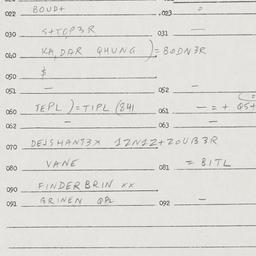 022 BOUD+ 023 =
030 S+TOP3R 031 —
040 KA,DAR QHUNG ) = BODN3R
050 $
051 — 052 —
060 TEPL ) = TIPL (84) 061 — = + QS+
062 — 063 —
070 DEJSHANT3X 12N12+ZOUB3R
080 VANE 081 = BITL
090 FINDERBRIN xx
091 GRINEN QPL 092 —